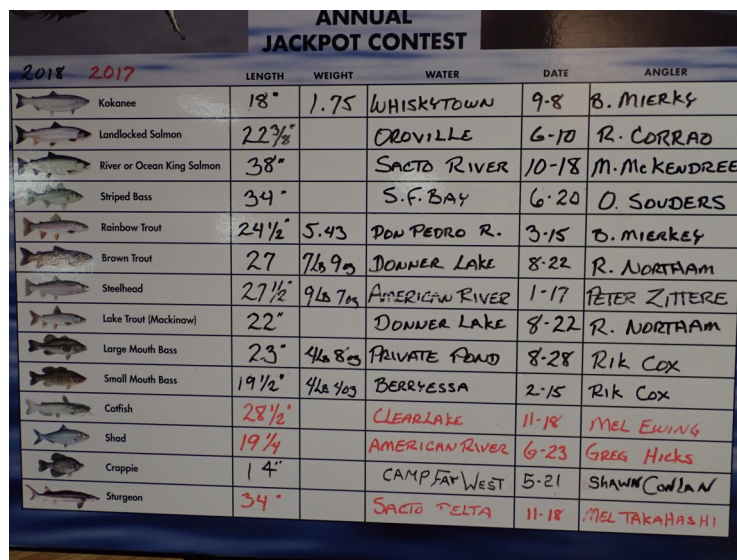 ANNUAL
JACKPOT CONTEST
2018 2017 LENGTH WEIGHT WATER DATE ANGLER
Kokanee 18" 1.75 WHISKYTOWN 9-8 B. MIERKY
Landlocked Salmon 22 3/8" OROVILLE 6-10 R. CORRAO
River or Ocean King Salmon 38" SACTO RIVER 10-18 M. McKENDREE
Striped Bass 34" S.F. BAY 6-20 O. SOUDERS
Rainbow Trout 24 1/2" 5.43 DON PEDRO R. 3-15 B. MIERKEY
Brown Trout 27 7LB 9oz DONNER LAKE 8-22 R. NORTHAM
Steelhead 27 1/2" 9LB 7oz AMERICAN RIVER 1-17 PETER ZITTERE
Lake Trout (Mackinaw) 22" DONNER LAKE 8-22 R. NORTHAM
Large Mouth Bass 23" 4LB 8oz PRIVATE POND 8-28 RIK COX
Small Mouth Bass 19 1/2" 4LB 4oz BERRYESSA 2-15 RIK COX
Catfish 28 1/2" CLEARLAKE 11-18 MEL EWING
Shad 19 1/4 AMERICAN RIVER 6-23 GREG HICKS
Crappie 14" CAMP FAR WEST 5-21 SHAWN CONLAN
Sturgeon 34" SACTO DELTA 11-18 MEL TAKAHASHI